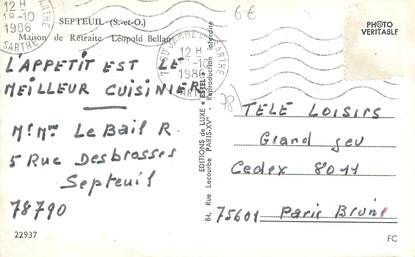 SEPTEUIL (S.-et-O.)
Maison de Retraite Léopold Bellan
12 H
18-10
1986
SARTHE
12 H
-10
1986
6€
PHOTO
VERITABLE
L'APPETIT EST LE
MEILLEUR CUISINIER
Mr Mme Le Bail R.
5 Rue Desbrosses
Septeuil
78790
22937
EDITIONS de LUXE « ESTEL »
84, Rue Lecourbe PARIS-XV°
Reproduction interdite
78
TELE Loisirs
Grand jeu
Cedex 8011
75601 Paris Brune
FC